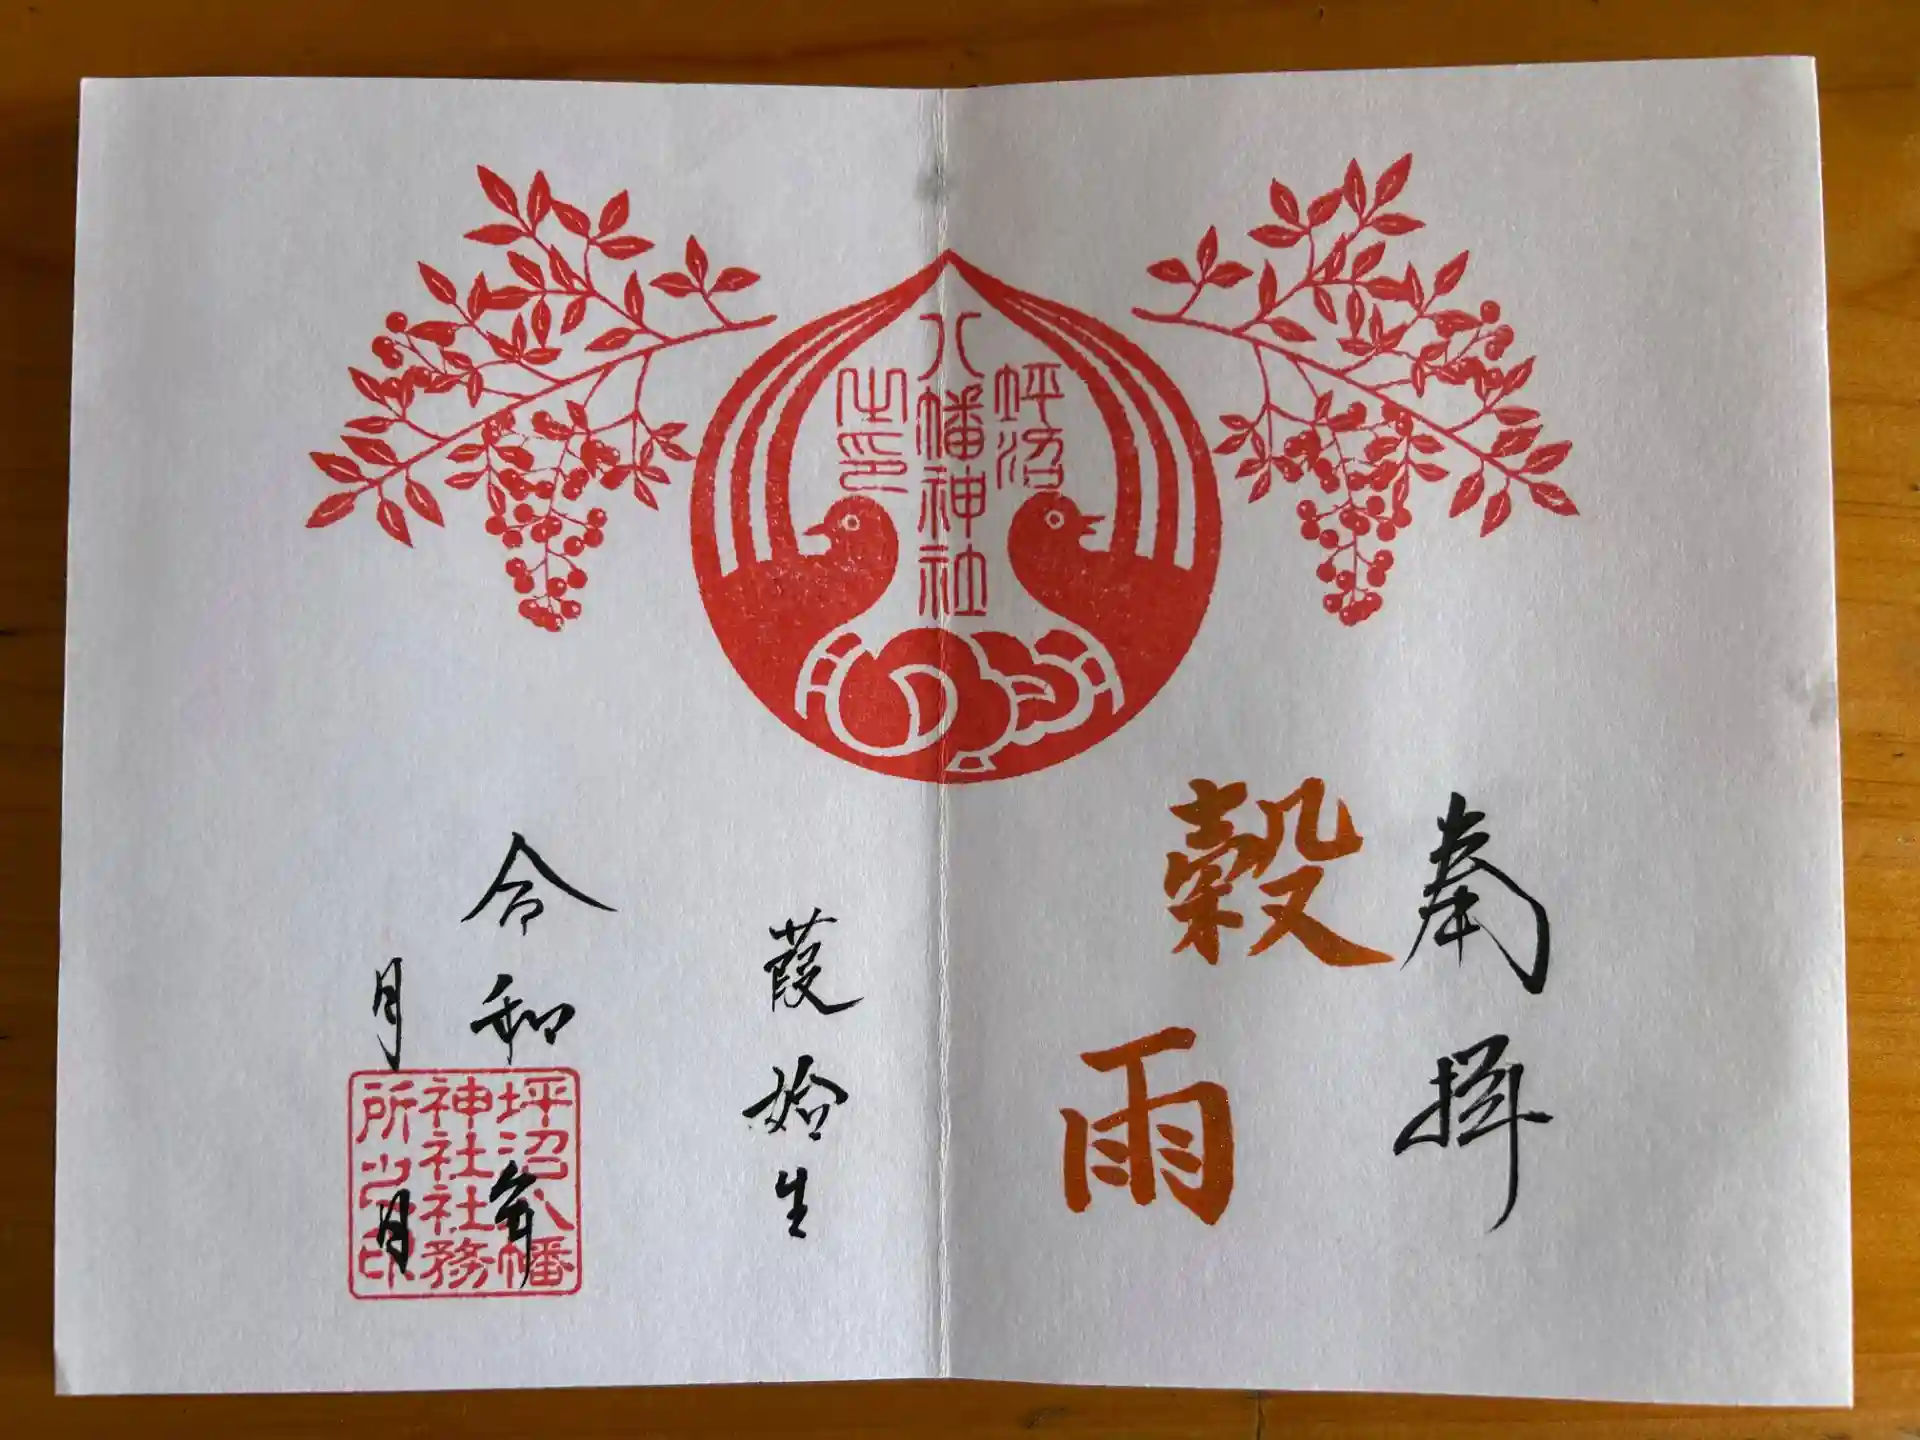 奉拝
穀雨
坪沼
八幡神社
之印
葭始生
令和 年
月 月
坪沼八幡
神社社務
所之印